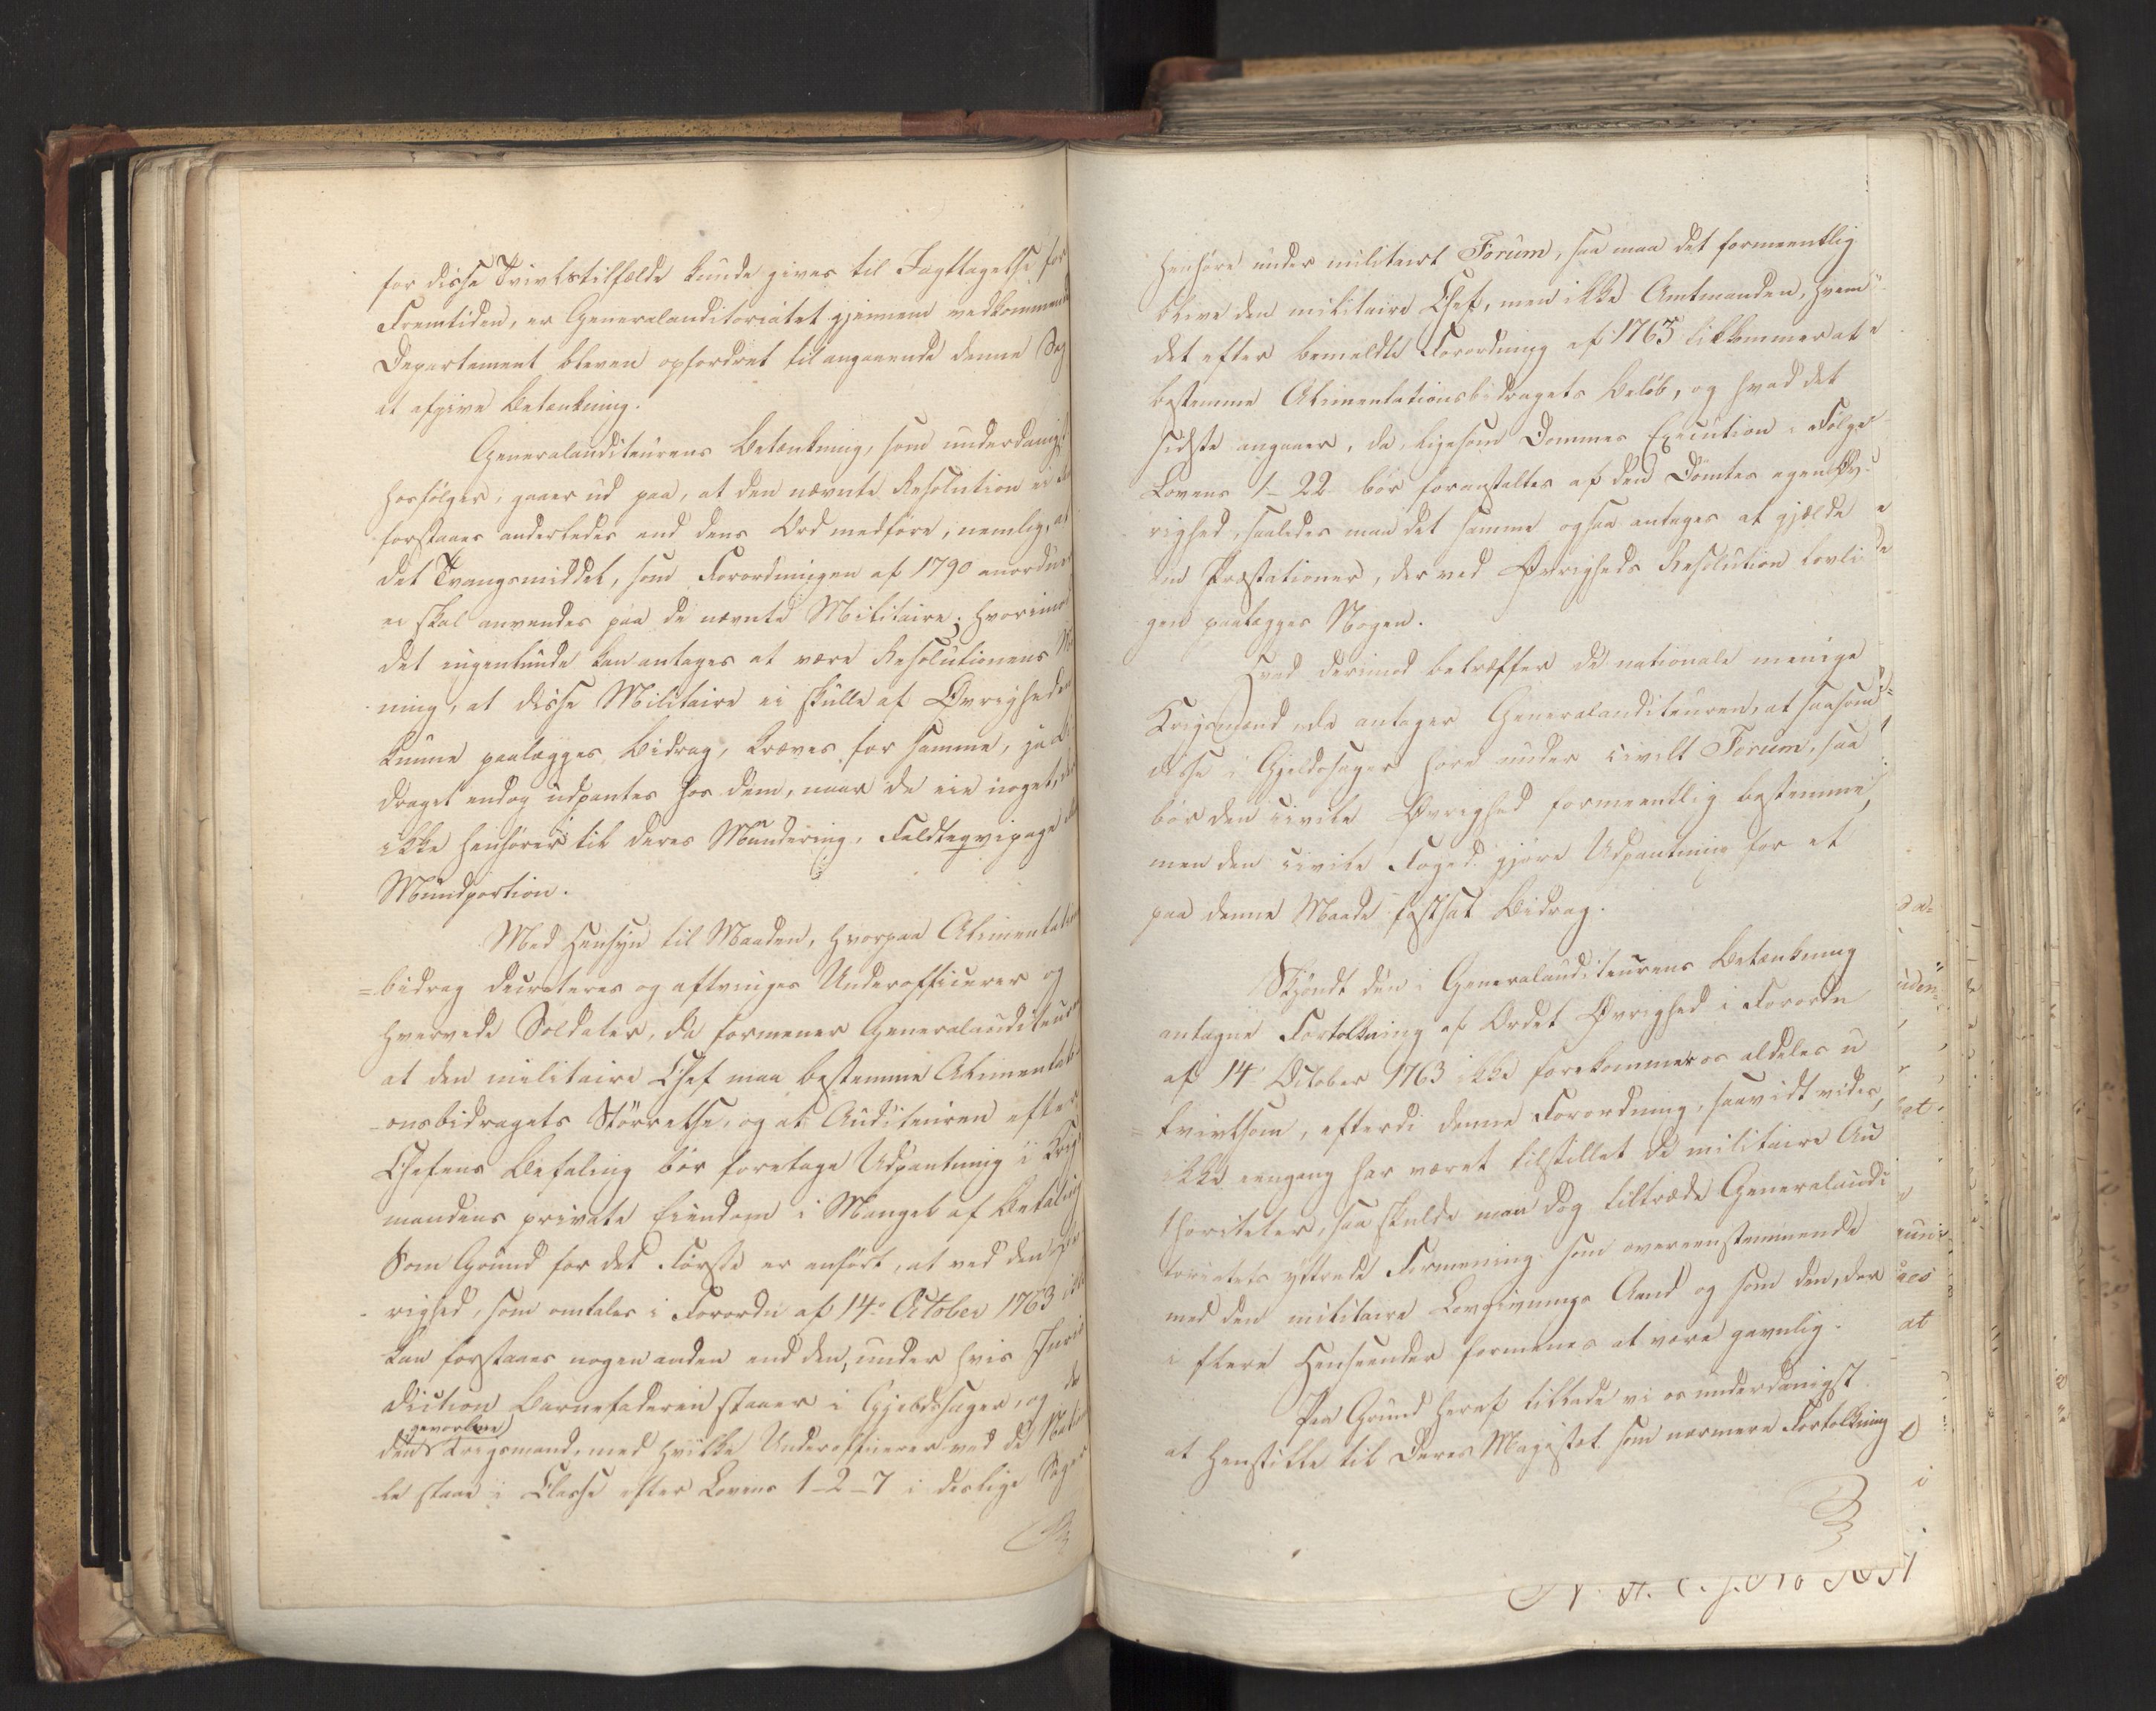 for disse Tvivlstilfælde kunde gives til Iagttagelse for
Fremtiden, er Generalauditoriatet gjennem vedkommende
Departement bleven opfordret til angaaende denne Sag
at afgive Betænkning.
Generalauditeurens Betænkning, som underdanigst
hosfølger, gaaer ud paa, at den nævnte Resolution ei
forstaaes anderledes end dens Ord medføre, nemlig, at
det Tvangsmiddel, som Forordningen af 1790 anordner
ei skal anvendes paa de nævnte Militaire; hvorimod
det ingenlunde kan antages at være Resolutionens Me
ning, at disse Militaire ei skulle af Øvrigheden
kunne paalægges Bidrag, kræves for samme, ja Bi
draget endog udpantes hos dem, naar de eie noget, der
ikke henhører til deres Mundering, Feldteqvipage
Mundportion.
Med Hensyn til Maaden, hvorpaa Alimentations
=bidrag decreteres og aftvinges Underofficierer og
hvervede Soldater, da formener Generalauditeuren
at den militaire Chef maa bestemme Alimentati
-onsbidragets Størrelse, og at Auditeuren efter
Chefens Befaling bør foretage Udpantning i Krigs
mandens private Eiendom i Mangel af Betaling
Som Grund for det Første er anført, at ved den Øv
righed, som omtales i Forordn af 14de October 1763 ikke
kan forstaaes nogen anden end den, under hvis Juris
diction Barnefaderen staaer i Gjeldssager, og da
gevorbne
den Krigsmand, med hvilke Underofficerer ved de Natio
le staae i Classe efter Lovens 1-2-7 i deslige Sager
henhøre under militairt Forum, saa maa det formeentlig
blive den militaire Chef, men ikke Amtmanden, hvem
det efter bemeldte Forordning af 1763 tilkommer at
bestemme Alimentationsbidragets Beløb, og hvad det
sidste angaaer, da, ligesom Dommes Execution i Følge
Lovens 1-22 bør foranstaltes af den Dømtes egen Øv
righed, saaledes maa det samme ogsaa antages at gjælde
om Præstationer, der ved Øvrigheds Resolution lovli
gen paalægges Nogen.
Hvad derimod betræffer de nationale menige
Krigsmænd, da antager Generalauditeuren, at saasom
disse i Gjeldssager høre under civilt Forum, saa
bør den civile Øvrighed formeentlig bestemme,
men den civile Foged gjøre Udpantning for et
paa denne Maade fastsat Bidrag.
Skjøndt den i Generalauditeurens Betænkning
antagne Fortolkning af Ordet Øvrighed i Forordn
af 14 October 1763 ikke forekommer os aldeles u
=tvivlsom, efterdi denne Forordning, saavidt vides,
ikke eengang har været tilstillet de militaire Au
thoriteter, saa skulde man dog tiltræde Generalaudi
toriatets yttrede Formening som overeenstemmende
med den militaire Lovgivnings Aand og som den, der
i flere Henseender formenes at være gavnlig.
Paa Grund heraf tillade vi os underdanigst
at henstille til Deres Majestæt som nærmere Fortolkning